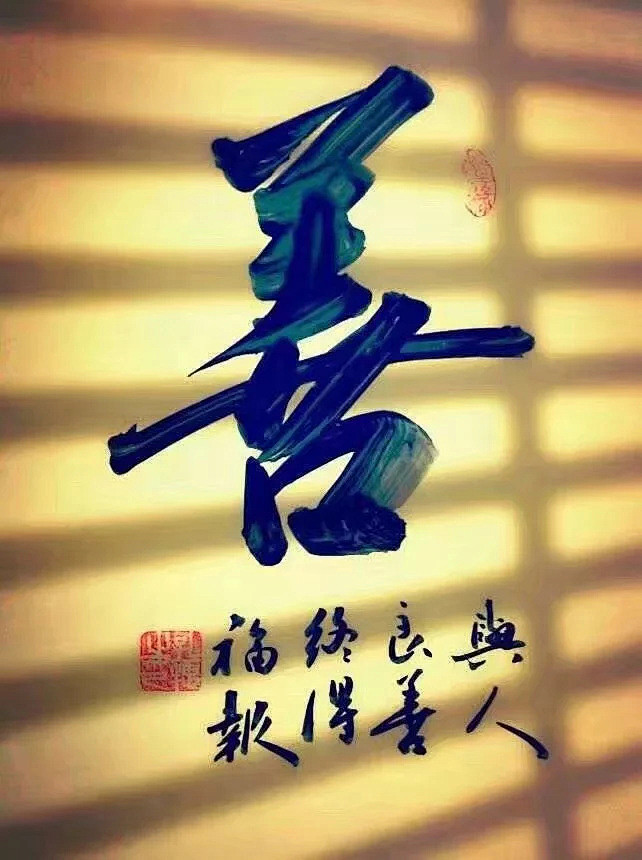 善
與人
良善
終得
福報